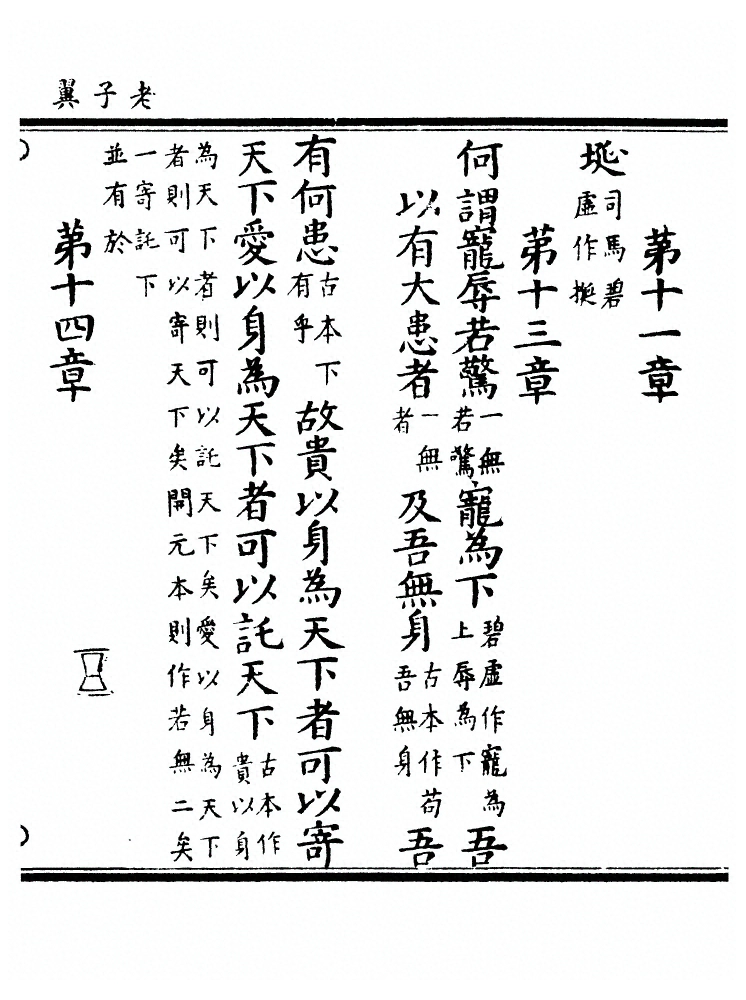 老子翼
第十一章
埏司馬碧虛作挻
第十三章
何謂寵辱若驚一無若驚寵為下碧虛作寵為上辱為下吾
以有大患者一無者及吾無身古本作苟吾無身吾
有何患古本下有乎故貴以身為天下者可以寄
天下愛以身為天下者可以託天下古本作貴以身
為天下者則可以託天下矣愛以身為天下
者則可以寄天下矣開元本則作若無二矣
一寄託下
並有於
第十四章